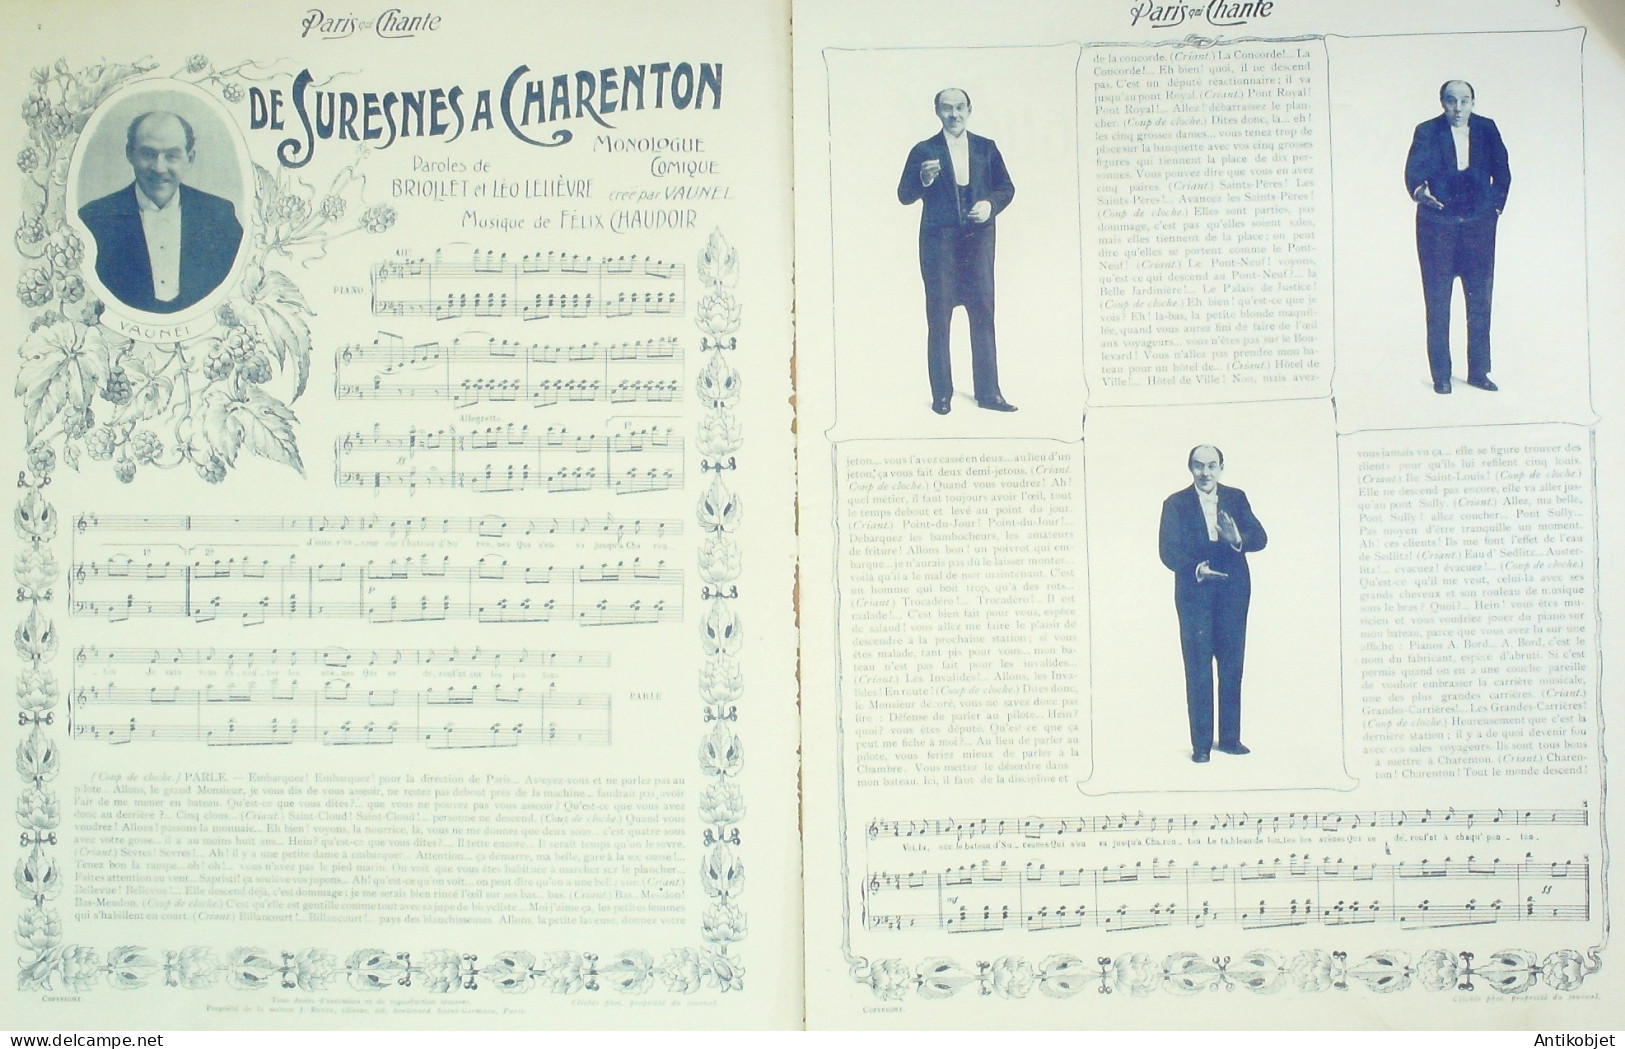 2
Paris qui Chante
DE SURESNES A CHARENTON
MONOLOGUE
COMIQUE
créé par VAUNEL
Paroles de
BRIOLLET et LÉO LELIÈVRE
Musique de FÉLIX CHAUDOIR
VAUNEL
PIANO
Allegretto
J'suis
sur l'bateau d'Su - resnes Qui s'en va jusqu'à Cha ren -
ton
PARLÉ
(Coup de cloche.) PARLÉ. — Embarquez! Embarquez! pour la direction de Paris... Asseyez-vous et ne parlez pas au
pilote... Allons, le grand Monsieur, je vous dis de vous asseoir, ne restez pas debout près de la machine... faudrait pas avoir
l'air de me mener en bateau. Qu'est-ce que vous dites?... que vous ne pouvez pas vous asseoir? Qu'est-ce que vous avez
donc au derrière?... Cinq clous... (Criant.) Saint-Cloud! Saint-Cloud!... personne ne descend. (Coup de cloche.) Quand vous
voudrez! Allons! passons la monnaie... Eh bien! voyons, la nourrice, là, vous ne me donnez que deux sous... c'est quatre sous
avec votre gosse... il a au moins huit ans... Hein? qu'est-ce que vous dites?... Il tette encore... Il serait temps qu'on le sèvre.
(Criant.) Sèvres! Sèvres!... Ah! il y a une petite dame à embarquer... Attention... ça démarre, ma belle, gare à la secousse!...
Tenez bon la rampe... oh! oh!... vous n'avez pas le pied marin. On voit que vous êtes habituée à marcher sur le plancher...
Faites attention au vent... Sapristi! ça soulève vos jupons... Ah! qu'est-ce qu'on voit... on peut dire qu'on a une belle vue. (Criant.)
Bellevue! Bellevue!... Elle descend déjà, c'est dommage; je me serais bien rincé l'œil sur ses bas... bas. (Criant.) Bas-Meudon!
Bas-Meudon. (Coup de cloche.) C'est qu'elle est gentille comme tout avec sa jupe de bicycliste... Moi j'aime ça, les petites femmes
qui s'habillent en court. (Criant.) Billancourt!... Billancourt!... pays des blanchisseuses. Allons, la petite laveuse, donnez votre
COPYRIGHT.
Tous droits d'exécution et de reproduction réservés.
Clichés phot. propriété du journal.
Paris qui Chante
3
de la concorde. (Criant.) La Concorde!... La
Concorde!... Eh bien! quoi, il ne descend
pas. C'est un député réactionnaire; il va
jusqu'au pont Royal. (Criant.) Pont Royal!
Pont Royal!... Allez! débarrassez le plan-
cher. (Coup de cloche.) Dites donc, là... eh!
les cinq grosses dames... vous tenez trop de
place sur la banquette avec vos cinq grosses
figures qui tiennent la place de dix per-
sonnes. Vous pouvez dire que vous en avez
cinq paires. (Criant.) Saints-Pères! Les
Saints-Pères!... Avancez les Saints-Pères!
(Coup de cloche.) Elles sont parties, pas
dommage, c'est pas qu'elles soient sales,
mais elles tiennent de la place; on peut
dire qu'elles se portent comme le Pont-
Neuf! (Criant.) Le Pont-Neuf! voyons,
qu'est-ce qui descend au Pont-Neuf?... la
Belle Jardinière!... Le Palais de Justice!
(Coup de cloche.) Eh bien! qu'est-ce que je
vois? Eh! là-bas, la petite blonde maquil-
lée, quand vous aurez fini de faire de l'œil
aux voyageurs... vous n'êtes pas sur le Bou-
levard! Vous n'allez pas prendre mon ba-
teau pour un hôtel de... (Criant.) Hôtel de
Ville!... Hôtel de Ville! Non, mais avez-
jeton... vous l'avez cassé en deux... au lieu d'un
jeton, ça vous fait deux demi-jetons. (Criant.
Coup de cloche.) Quand vous voudrez! Ah!
quel métier, il faut toujours avoir l'œil, tout
le temps debout et levé au point du jour.
(Criant.) Point-du-Jour! Point-du-Jour!...
Débarquez les bambocheurs, les amateurs
de friture! Allons bon! un poivrot qui em-
barque... je n'aurais pas dû le laisser monter...
voilà qu'il a le mal de mer maintenant. C'est
un homme qui boit trop, qu'a des rots...
(Criant) Trocadéro!... Trocadéro!... Il est
malade!... C'est bien fait pour vous, espèce
de salaud! vous allez me faire le plaisir de
descendre à la prochaine station; si vous
êtes malade, tant pis pour vous... mon ba-
teau n'est pas fait pour les invalides...
(Criant.) Les Invalides!... Allons, les Inva-
lides! En route! (Coup de cloche.) Dites donc,
le Monsieur décoré, vous ne savez donc pas
lire : Défense de parler au pilote... Hein?
quoi? vous êtes député. Qu'est-ce que ça
peut me fiche à moi?... Au lieu de parler au
pilote, vous feriez mieux de parler à la
Chambre. Vous mettez le désordre dans
mon bateau. Ici, il faut de la discipline et
vous jamais vu ça... elle se figure trouver des
clients pour qu'ils lui refilent cinq louis.
(Criant.) Ile Saint-Louis! (Coup de cloche.)
Elle ne descend pas encore, elle va aller jus-
qu'au pont Sully. (Criant.) Allez, ma belle,
Pont Sully! allez coucher... Pont Sully...
Pas moyen d'être tranquille un moment.
Ah! ces clients! Ils me font l'effet de l'eau
de Sedlitz! (Criant.) Eau d' Sedlitz... Auster-
litz!... évacuez! évacuez!... (Coup de cloche.)
Qu'est-ce qu'il me veut, celui-là avec ses
grands cheveux et son rouleau de musique
sous le bras? Quoi?... Hein! vous êtes mu-
sicien et vous voudriez jouer du piano sur
mon bateau, parce que vous avez lu sur une
affiche : Pianos A. Bord... A. Bord, c'est le
nom du fabricant, espèce d'abruti. Si c'est
permis quand on en a une couche pareille
de vouloir embrasser la carrière musicale,
une des plus grandes carrières. (Criant.)
Grandes-Carrières!... Les Grandes-Carrières!
(Coup de cloche.) Heureusement que c'est la
dernière station; il y a de quoi devenir fou
avec ces sales voyageurs. Ils sont tous bons
à mettre à Charenton. (Criant.) Charen-
ton! Charenton! Tout le monde descend!
Voi - là, sur le bateau d'Su - resnes Qui s'en va jusqu'à Cha - ren - ton Le tableau de tou - tes les scènes Qui se dé - roul'nt à chaqu' pon - ton.
mf
ff
COPYRIGHT.
Clichés phot. propriété du journal.
Antikobjet